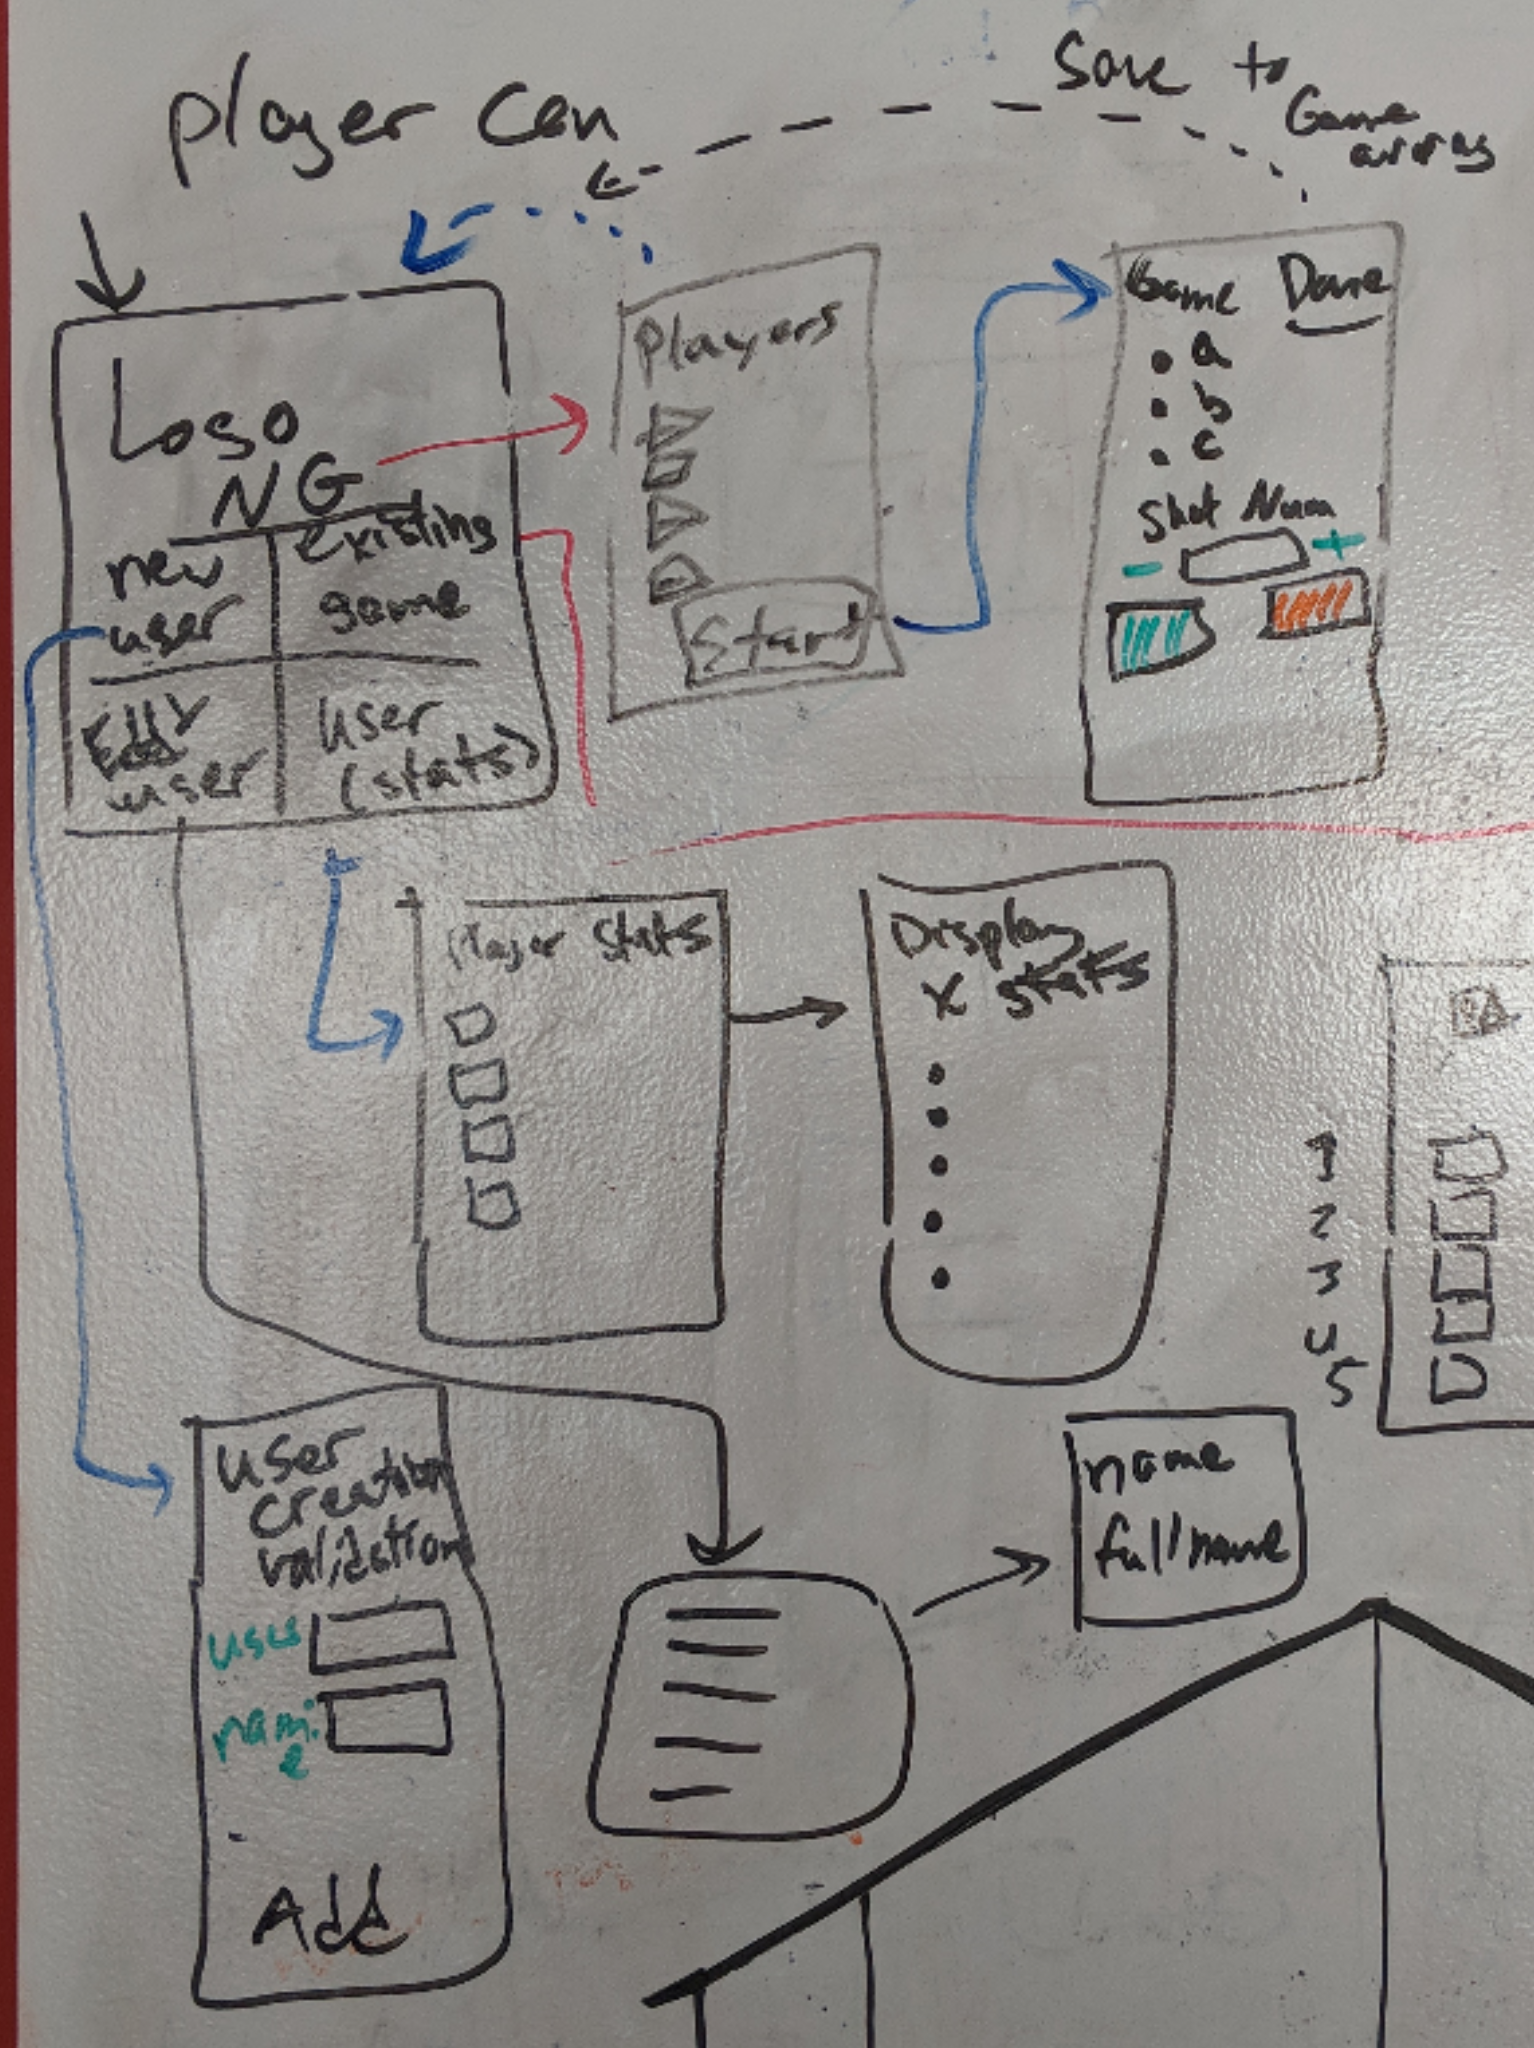 player can
Save to
Game
array
Logo
NG
new
user
existing
game
Edit
user
user
(stats)
Players
Start
Game Done
• a
• b
• c
Shot Num
- +
Player Stats
Display
x stats
1
2
3
4
5
user
creation
validation
user
name
Add
name
fullname